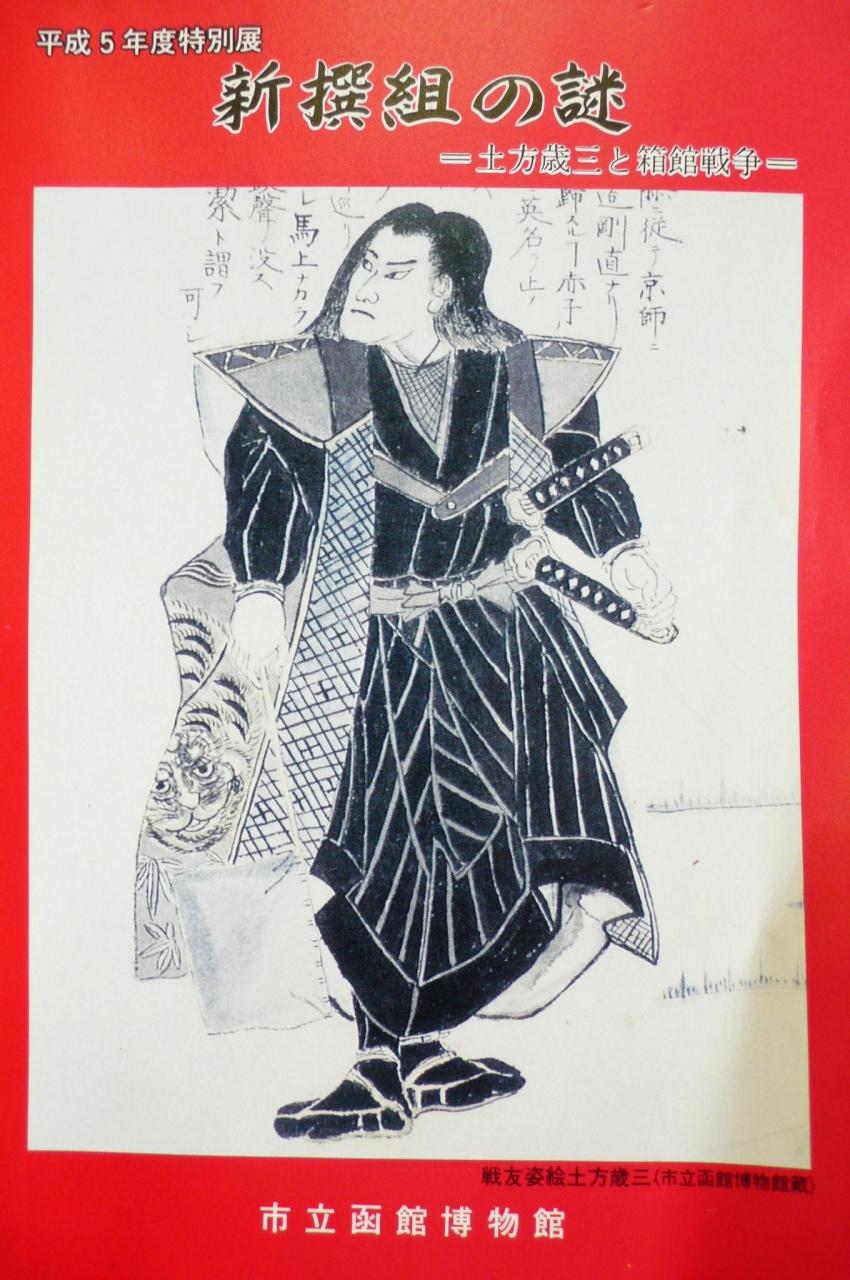 平成5年度特別展
新撰組の謎
＝土方歳三と箱館戦争＝
ニ従テ京師ニ
剛直ナリ
歸スルヿ赤子ノ
英名ヲ止ノ
巡リ
レ馬上ナカラ
聲ノ没ス
潔ト謂フ
可シ
戦友姿絵土方歳三(市立函館博物館蔵)
市立函館博物館